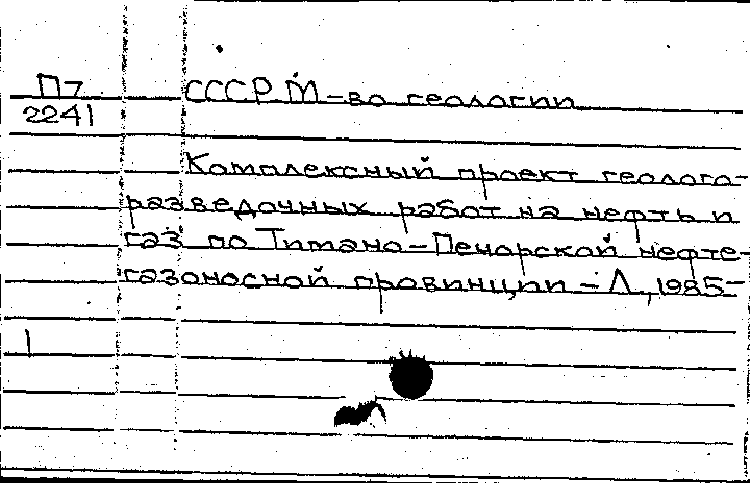 П7 СССР М-во геологии
2241
Комплексный проект геолого-
разведочных работ на нефть и
газ по Тимано-Печорской нефте-
газоносной провинции - Л., 1985-
1